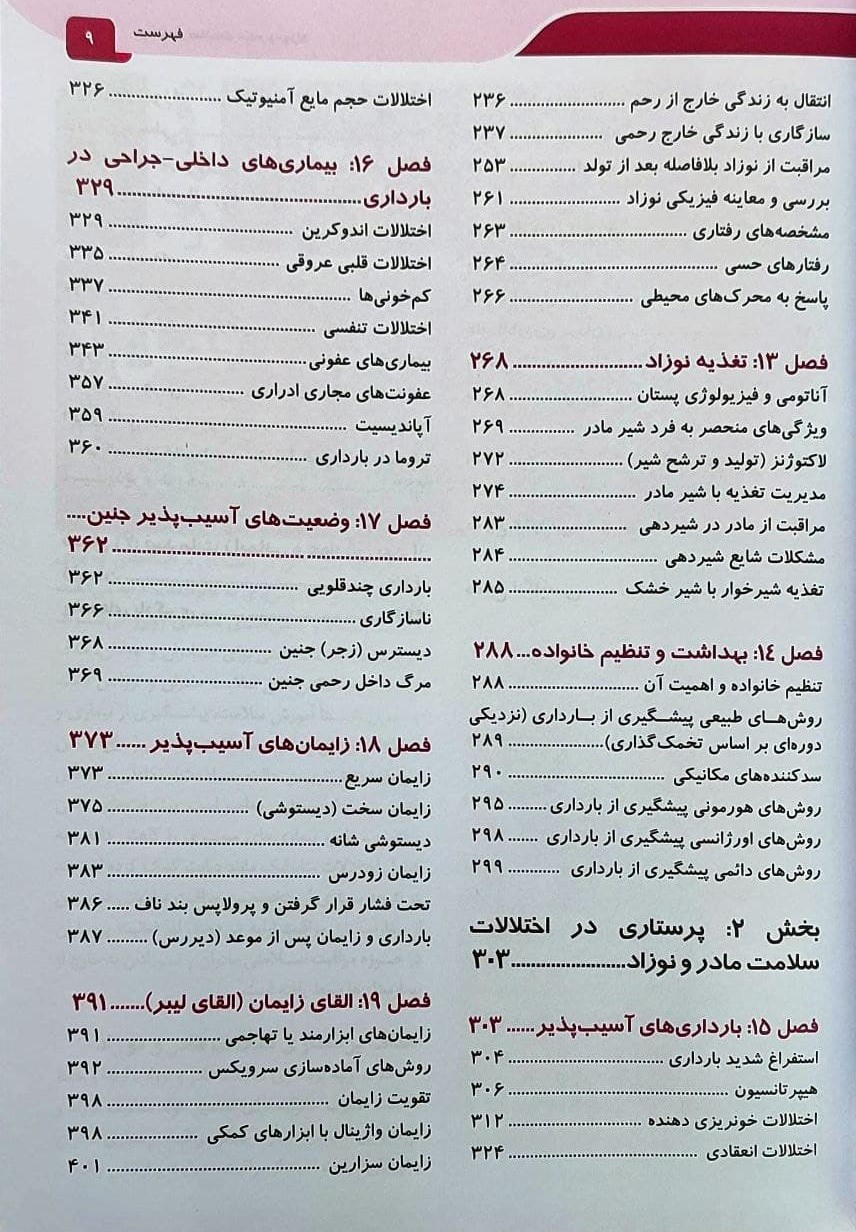 فهرست
۹
انتقال به زندگی خارج از رحم ........................ ۲۳۶
سازگاری با زندگی خارج رحمی .................... ۲۳۷
مراقبت از نوزاد بلافاصله بعد از تولد .............. ۲۵۳
بررسی و معاینه فیزیکی نوزاد ........................ ۲۶۱
مشخصه‌های رفتاری .................................... ۲۶۳
رفتارهای حسی .......................................... ۲۶۴
پاسخ به محرک‌های محیطی .......................... ۲۶۶
فصل ۱۳: تغذیه نوزاد .......................... ۲۶۸
آناتومی و فیزیولوژی پستان .......................... ۲۶۸
ویژگی‌های منحصر به فرد شیر مادر .............. ۲۶۹
لاکتوژنز (تولید و ترشح شیر) ........................ ۲۷۲
مدیریت تغذیه با شیر مادر .......................... ۲۷۴
مراقبت از مادر در شیردهی ........................ ۲۸۳
مشکلات شایع شیردهی .............................. ۲۸۴
تغذیه شیرخوار با شیر خشک ...................... ۲۸۵
فصل ۱۴: بهداشت و تنظیم خانواده... ۲۸۸
تنظیم خانواده و اهمیت آن .......................... ۲۸۸
روش‌های طبیعی پیشگیری از بارداری (نزدیکی
دوره‌ای بر اساس تخمک‌گذاری).................... ۲۸۹
سدکننده‌های مکانیکی ................................ ۲۹۰
روش‌های هورمونی پیشگیری از بارداری ......... ۲۹۵
روش‌های اورژانسی پیشگیری از بارداری ....... ۲۹۸
روش‌های دائمی پیشگیری از بارداری ............ ۲۹۹
بخش ۲: پرستاری در اختلالات
سلامت مادر و نوزاد........................ ۳۰۳
فصل ۱۵: بارداری‌های آسیب‌پذیر...... ۳۰۳
استفراغ شدید بارداری ................................ ۳۰۴
هیپرتانسیون .............................................. ۳۰۶
اختلالات خونریزی دهنده ............................ ۳۱۲
اختلالات انعقادی ...................................... ۳۲۴
اختلالات حجم مایع آمنیوتیک ...................... ۳۲۶
فصل ۱۶: بیماری‌های داخلی-جراحی در
بارداری .............................................. ۳۲۹
اختلالات اندوکرین .................................... ۳۲۹
اختلالات قلبی عروقی ................................ ۳۳۵
کم‌خونی‌ها ................................................ ۳۳۷
اختلالات تنفسی ........................................ ۳۴۱
بیماری‌های عفونی ...................................... ۳۴۳
عفونت‌های مجاری ادراری .......................... ۳۵۷
آپاندیسیت ................................................ ۳۵۹
تروما در بارداری ........................................ ۳۶۰
فصل ۱۷: وضعیت‌های آسیب‌پذیر جنین....
.......................................................... ۳۶۲
بارداری چندقلویی ...................................... ۳۶۲
ناسازگاری ................................................ ۳۶۶
دیسترس (زجر) جنین ................................ ۳۶۸
مرگ داخل رحمی جنین .............................. ۳۶۹
فصل ۱۸: زایمان‌های آسیب‌پذیر ...... ۳۷۳
زایمان سریع .............................................. ۳۷۳
زایمان سخت (دیستوشی) .......................... ۳۷۵
دیستوشی شانه .......................................... ۳۸۱
زایمان زودرس .......................................... ۳۸۳
تحت فشار قرار گرفتن و پرولاپس بند ناف ..... ۳۸۶
بارداری و زایمان پس از موعد (دیررس) ......... ۳۸۷
فصل ۱۹: القای زایمان (القای لیبر)....... ۳۹۱
زایمان‌های ابزارمند یا تهاجمی ...................... ۳۹۱
روش‌های آماده‌سازی سرویکس .................... ۳۹۲
تقویت زایمان ............................................ ۳۹۸
زایمان واژینال با ابزارهای کمکی .................. ۳۹۸
زایمان سزارین .......................................... ۴۰۱